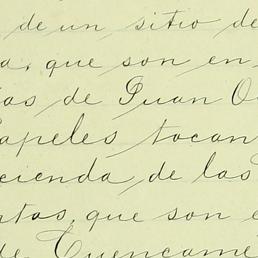 de un sitio de
a, que son en
as de Juan O
Papeles tocan
cienda de las
ntas, que son e
de Cuencamé